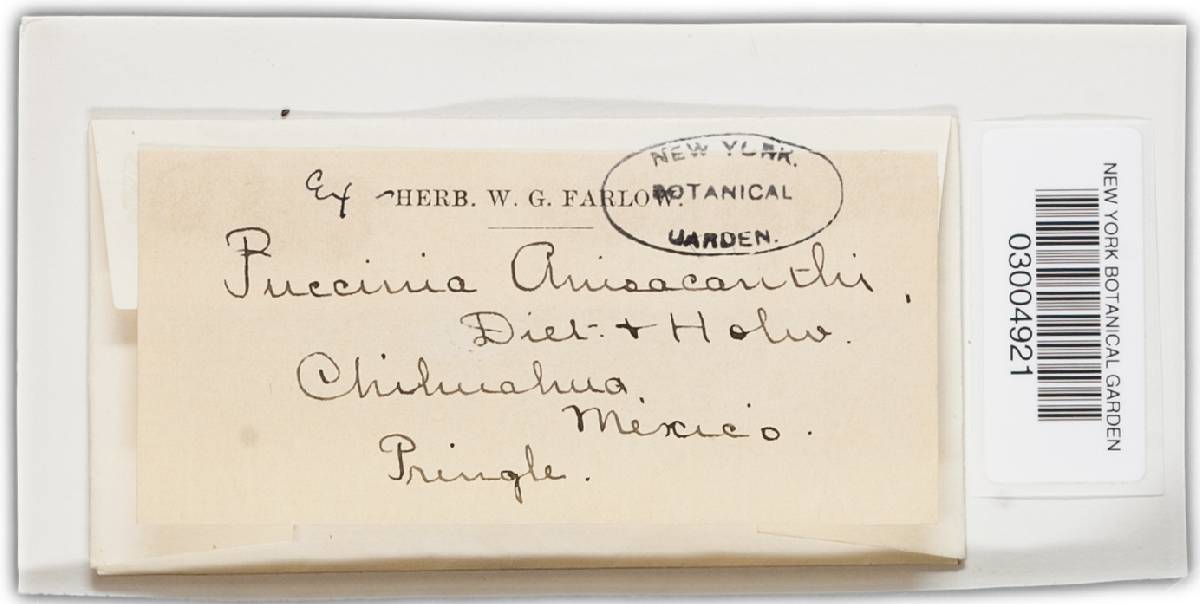 Ex HERB. W. G. FARLOW.
NEW YORK
BOTANICAL
GARDEN.
Puccinia Anisacanthi,
Diet. + Holw.
Chihuahua,
Mexico.
Pringle.
NEW YORK BOTANICAL GARDEN
03004921